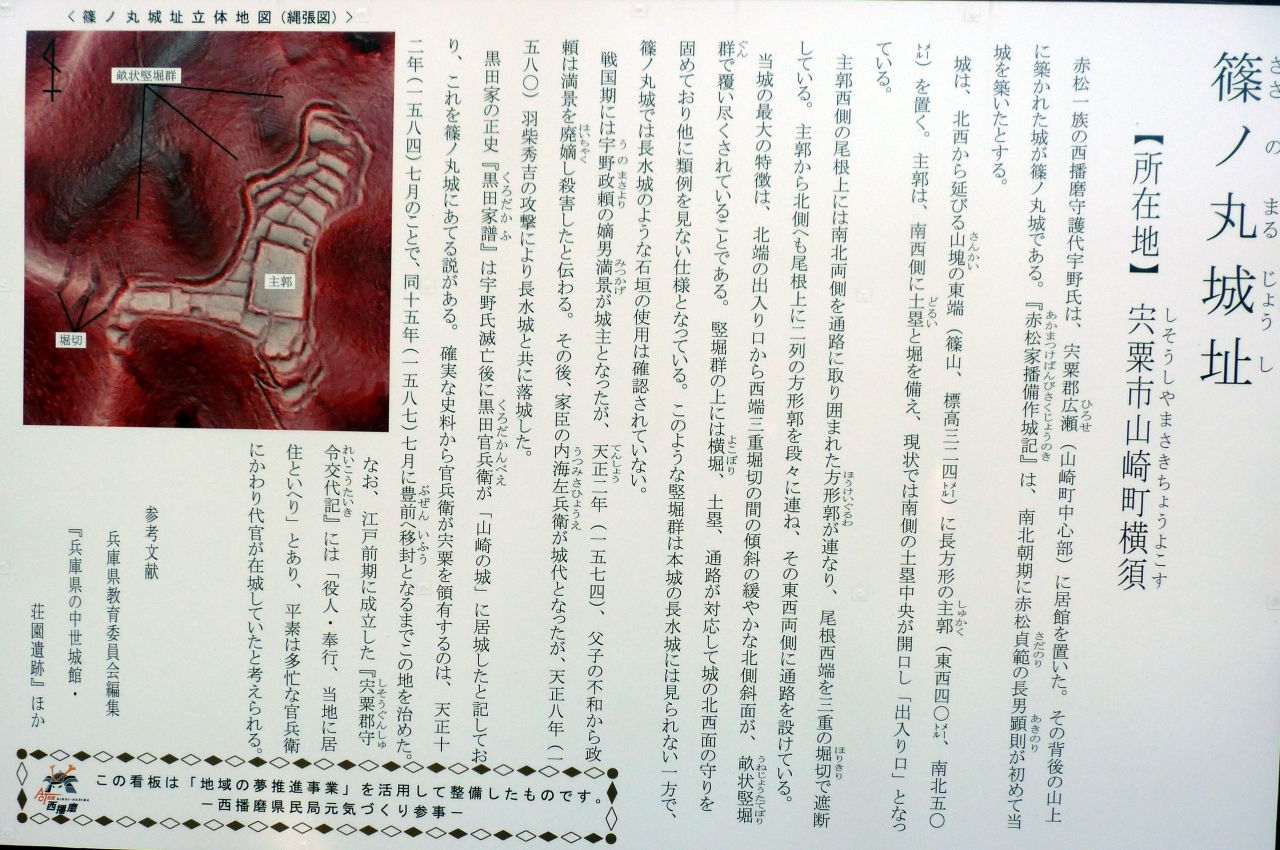 篠ノ丸城址
ささ の まる じょう し
【所在地】 宍粟市山崎町横須
しそうしやまさきちょうよこす
赤松一族の西播磨守護代宇野氏は、宍粟郡広瀬（山崎町中心部）に居館を置いた。その背後の山上
ひろせ
に築かれた城が篠ノ丸城である。『赤松家播備作城記』は、南北朝期に赤松貞範の長男顕則が初めて当
あかまつけばんびさくじょうのき
さだのり
あきのり
城を築いたとする。
城は、北西から延びる山塊の東端（篠山、標高三二四㍍）に長方形の主郭（東西四〇㍍、南北五〇
さんかい
しゅかく
㍍）を置く。主郭は、南西側に土塁と堀を備え、現状では南側の土塁中央が開口し「出入り口」となっ
どるい
ている。
主郭西側の尾根上には南北両側を通路に取り囲まれた方形郭が連なり、尾根西端を三重の堀切で遮断
ほうけいぐるわ
ほりきり
している。主郭から北側へも尾根上に二列の方形郭を段々に連ね、その東西両側に通路を設けている。
当城の最大の特徴は、北端の出入り口から西端三重堀切の間の傾斜の緩やかな北側斜面が、畝状竪堀
うねじょうたてぼり
群で覆い尽くされていることである。竪堀群の上には横堀、土塁、通路が対応して城の北西面の守りを
ぐん
よこぼり
固めており他に類例を見ない仕様となっている。このような竪堀群は本城の長水城には見られない一方で、
篠ノ丸城では長水城のような石垣の使用は確認されていない。
戦国期には宇野政頼の嫡男満景が城主となったが、天正二年（一五七四）、父子の不和から政
うのまさより
みつかげ
てんしょう
頼は満景を廃嫡し殺害したと伝わる。その後、家臣の内海左兵衛が城代となったが、天正八年（一
はいちゃく
うつみさひょうえ
五八〇）羽柴秀吉の攻撃により長水城と共に落城した。
黒田家の正史『黒田家譜』は宇野氏滅亡後に黒田官兵衛が「山崎の城」に居城したと記してお
くろだかふ
くろだかんべえ
り、これを篠ノ丸城にあてる説がある。確実な史料から官兵衛が宍粟を領有するのは、天正十
二年（一五八四）七月のことで、同十五年（一五八七）七月に豊前へ移封となるまでこの地を治めた。
ぶぜん いふう
なお、江戸前期に成立した『宍粟郡守
しそうぐんしゅ
令交代記』には「役人・奉行、当地に居
れいこうたいき
住といへり」とあり、平素は多忙な官兵衛
にかわり代官が在城していたと考えられる。
参考文献
兵庫県教育委員会編集
『兵庫県の中世城館・
荘園遺跡』ほか
＜篠ノ丸城址立体地図（縄張図）＞
畝状竪堀群
主郭
堀切
この看板は「地域の夢推進事業」を活用して整備したものです。
－西播磨県民局元気づくり参事－
西播磨